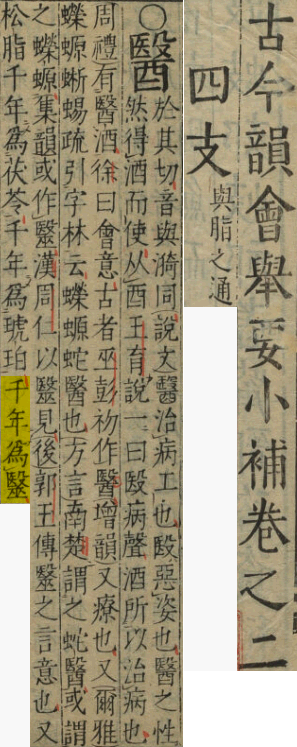 古今韻會舉要小補卷之二
四支 與脂之通
○醫 於其切音與漪同說文醫治病工也殹惡姿也醫之性
然得酒而使从酉王育說一曰殹病聲酒所以治病也
周禮有醫酒徐曰會意古者巫彭初作醫增韻又療也又爾雅
蠑螈蜥蜴疏引字林云蠑螈蛇醫也方言南楚謂之蛇醫或謂
之蠑螈集韻或作毉漢周仁以毉見後郭玉傳毉之言意也又
松脂千年爲茯苓千年爲琥珀千年爲毉